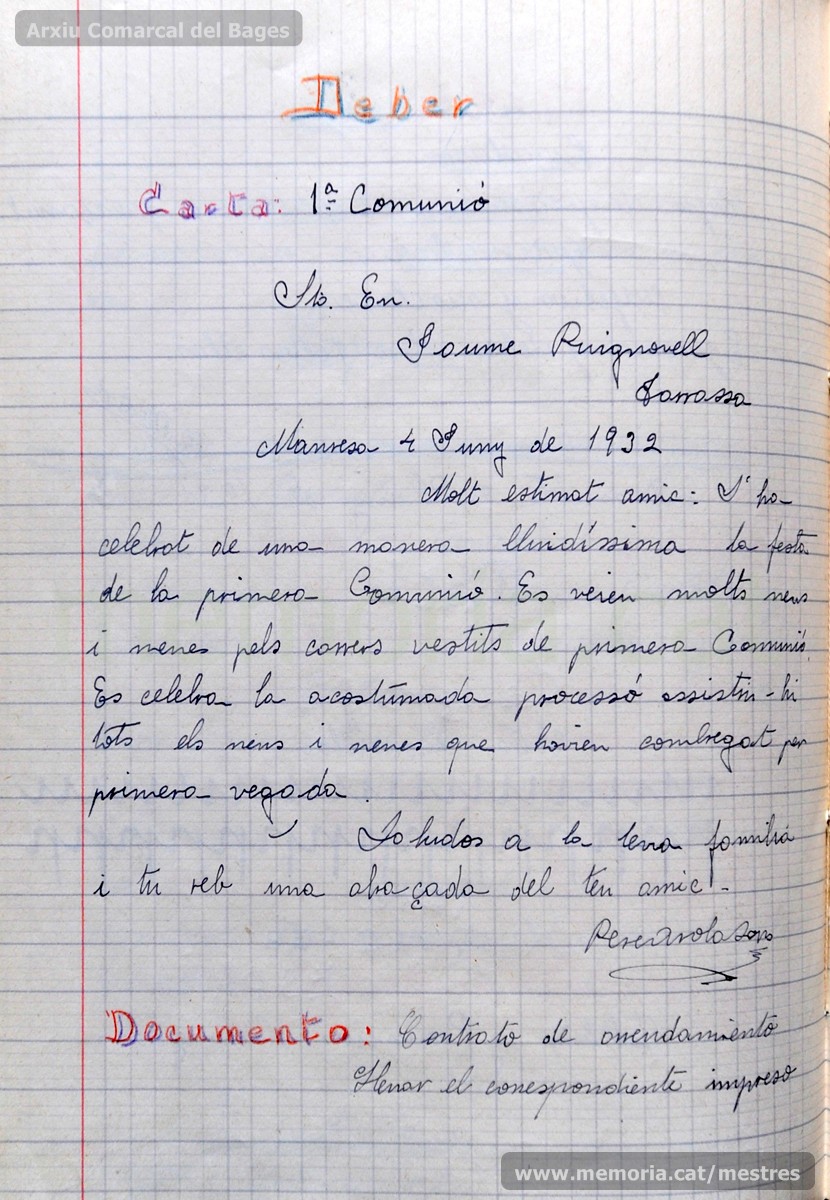 Arxiu Comarcal del Bages
Deber
Carta: 1ª Comunió
Sr. En.
Jaume Puignovell
Tarrassa
Manresa 4 Juny de 1932
Molt estimat amic: S'ha
celebrat de una manera lluidíssima la festa
de la primera Comunió. Es veien molts nens
i nenes pels carrers vestits de primera Comunió.
Es celebra la acostumada processó assistin-hi
tots els nens i nenes que havien combregat per
primera vegada.
Saludos a la teva familia
i tu reb una abraçada del teu amic.
Pere Arola
Documento: Contrato de arrendamiento
Llenar el correspondiente impreso
www.memoria.cat/mestres